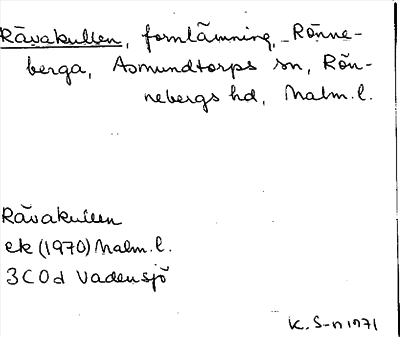 Rävakullen, fornlämning, Rönne-
berga, Asmundtorps sn, Rön-
nebergs hd, Malm. l.
Rävakullen
ek (1970) Malm. l.
3C0d Vadensjö
K. S-n 1971